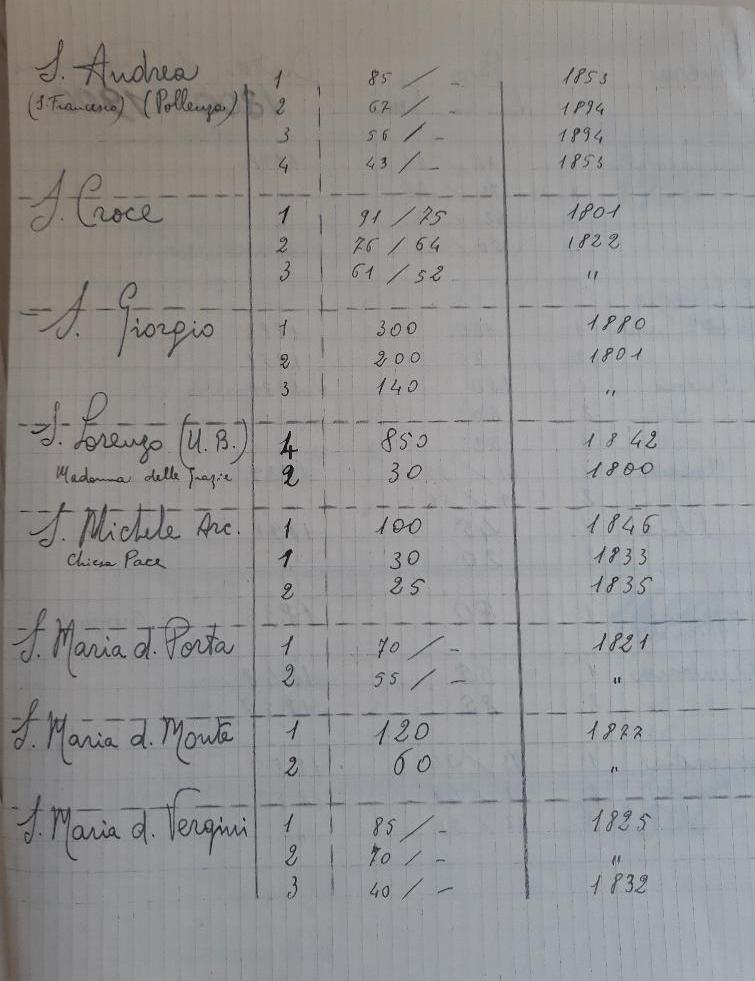 S. Andrea 1 85 / - 1853
(S. Francesco) (Pollenza) 2 67 / - 1894
3 56 / - 1894
4 43 / - 1853
S. Croce 1 91 / 75 1801
2 76 / 64 1822
3 61 / 52 "
S. Giorgio 1 300 1880
2 200 1801
3 140 "
S. Lorenzo (U. B.) 1 850 1842
Madonna delle Grazie 2 30 1800
S. Michele Arc. 1 100 1846
Chiesa Pace 1 30 1833
2 25 1835
S. Maria d. Porta 1 70 / - 1821
2 55 / - "
S. Maria d. Monte 1 120 1877
2 60 "
S. Maria d. Vergini 1 85 / - 1825
2 70 / - "
3 40 / - 1832